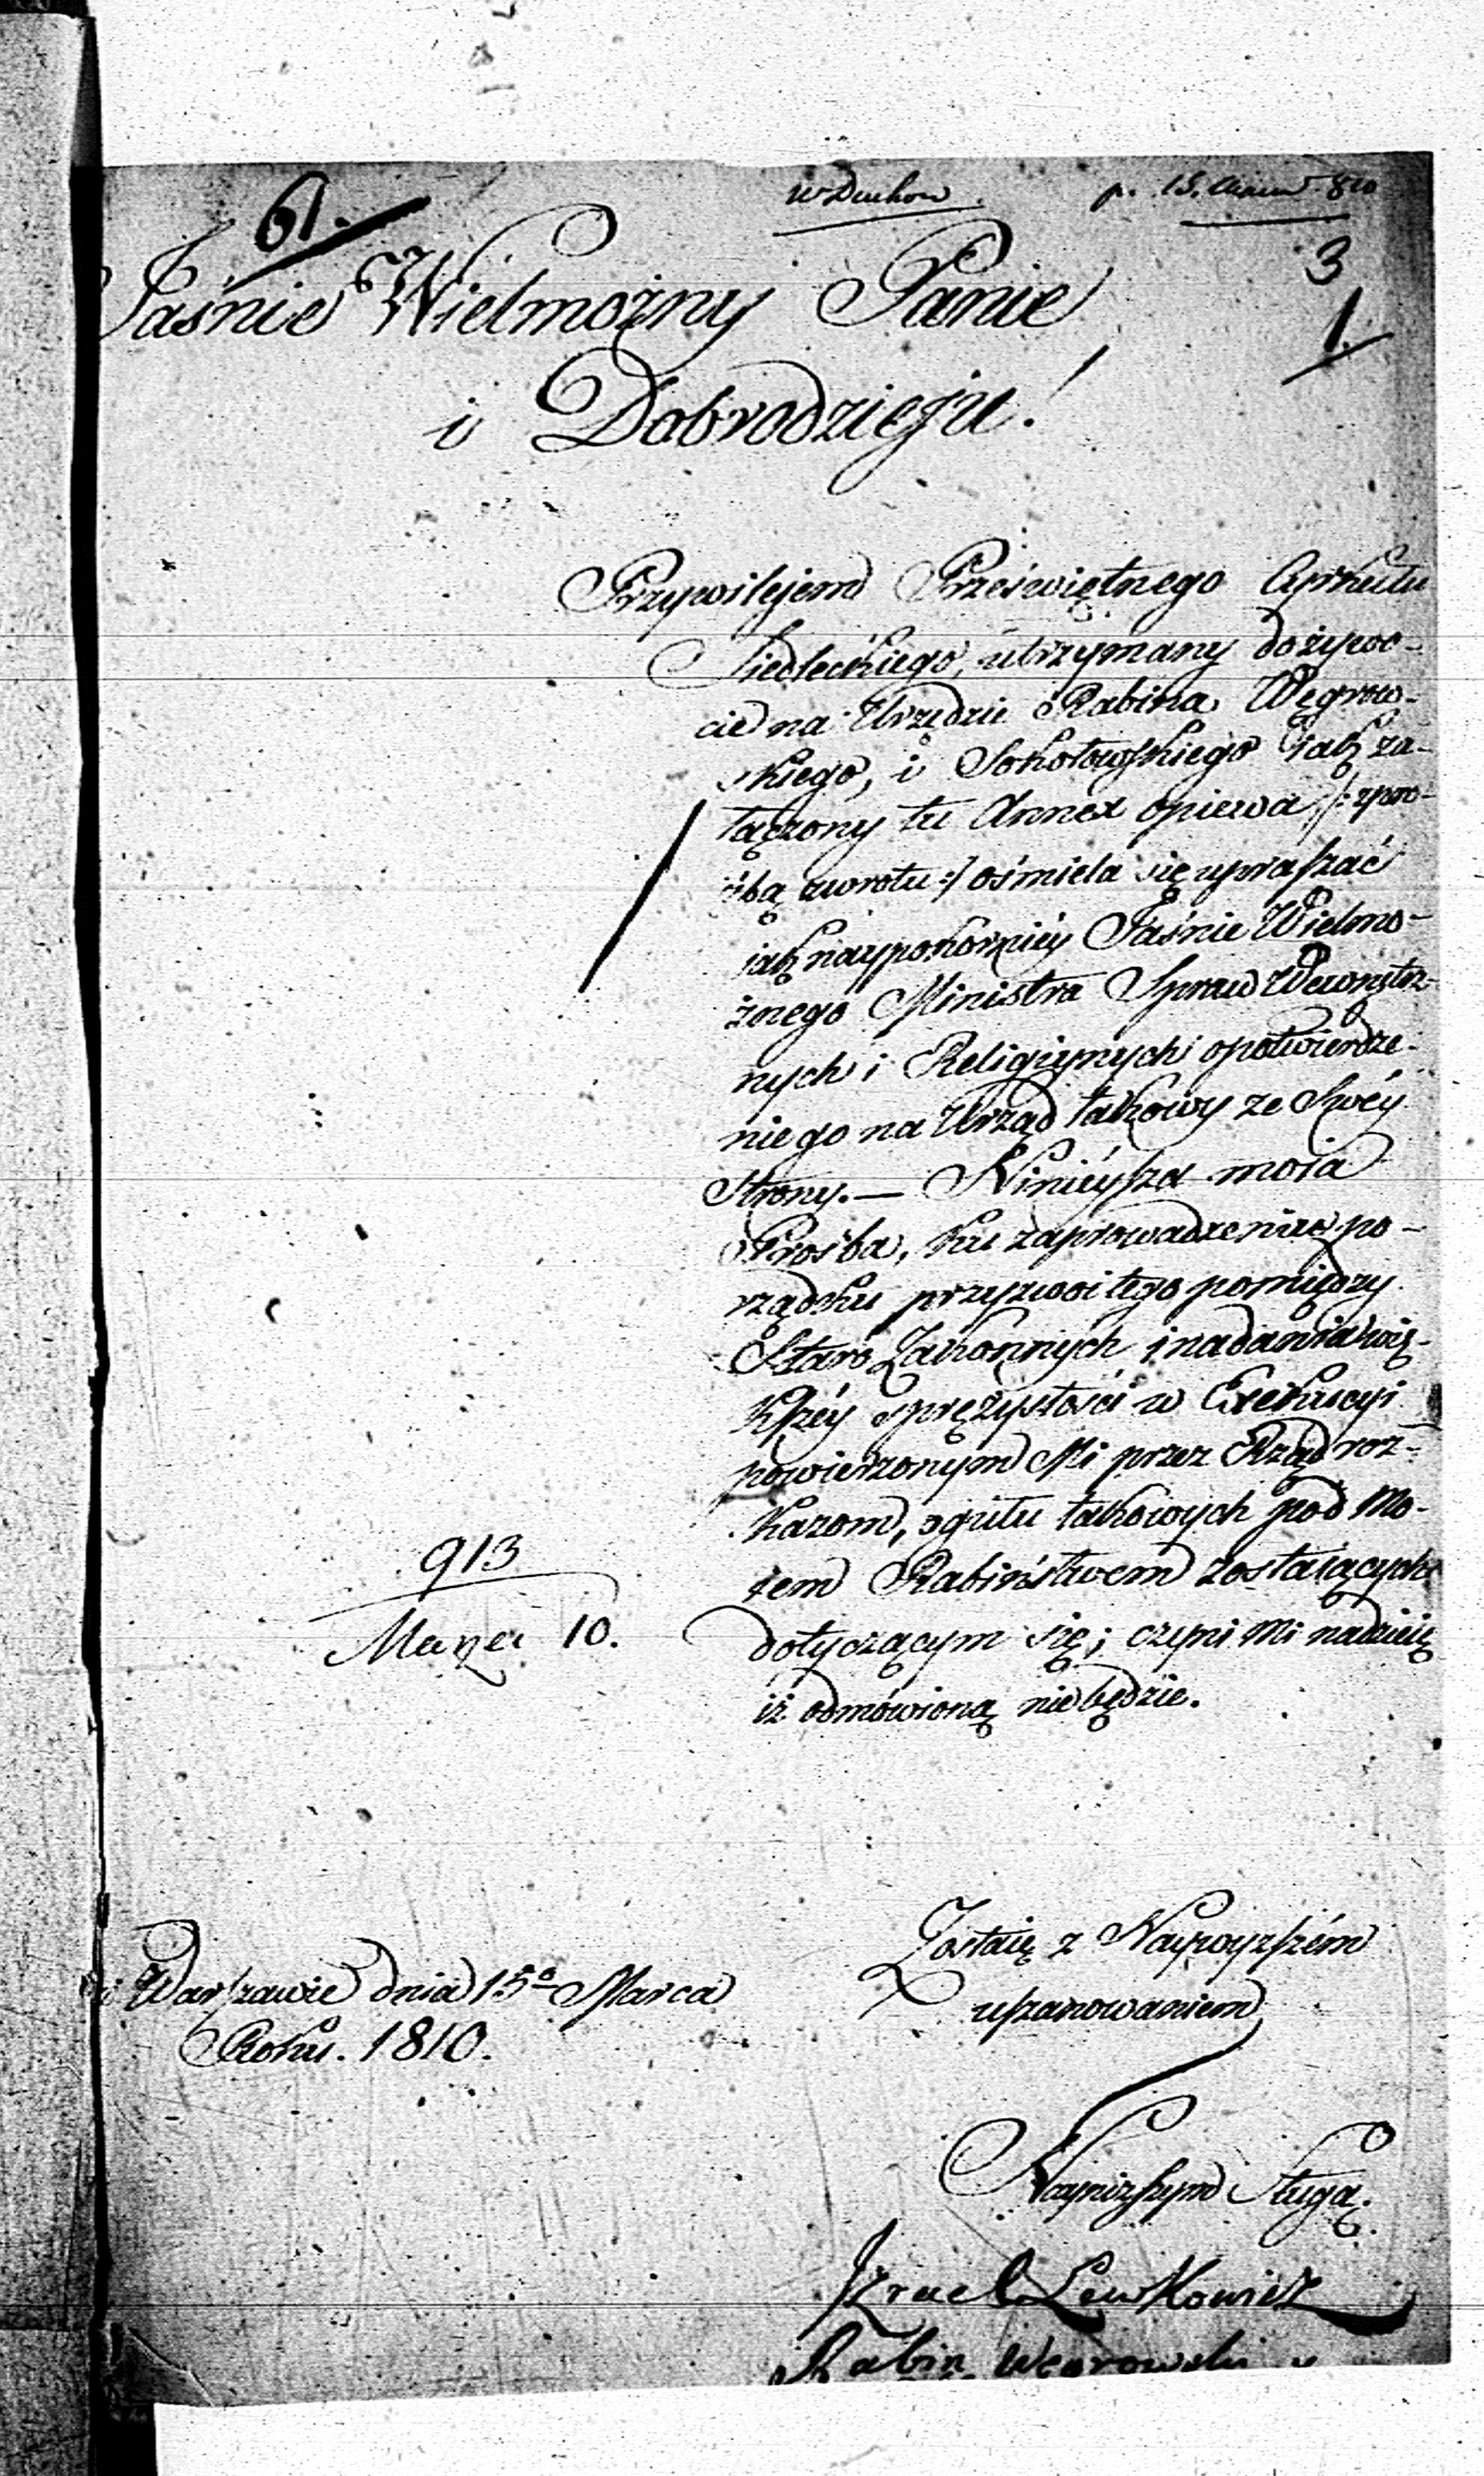 61.
w Duchow. p. 15. 810
3
1.
Jaśnie Wielmożny Panie
i Dobrodzieju!
Przywilejem Przeświętnego Cyrkułu
Siedleckiego, utrzymany dożywo-
cie na Urzędzie Rabina Węgrow-
skiego, i Sokołowskiego iak za-
łączony tu Annex opiewa /: z pro-
śbą zwrotu :/ ośmiela się upraszać
iak naypokorniéy Jaśnie Wielmo-
żnego Ministra Spraw Wewnętrz-
nych i Religiynych o potwierdze-
nie go na Urząd takowy ze Swéy
Strony. — Ninieysza moia
Prośba, ku zaprowadzeniu po-
rządku przyzwoitego pomiędzy
Staro Zakonnych i nadania wię-
kszéy sprężystości w Exekucyi
powierzonym Mi przez Rząd roz-
kazom, ogułu takowych pod Mo-
iem Rabiństwem zostaiących
dotyczącym się; czyni Mi nadzieię
iż odmówioną nie będzie.
913
Marca 10.
Zostaię z Naywyższém
uszanowaniem
w Warszawie dnia 15º Marca
Roku. 1810.
Nayniższym Sługą.
Izrael Lewkowicz
Rabin Wegrowski y